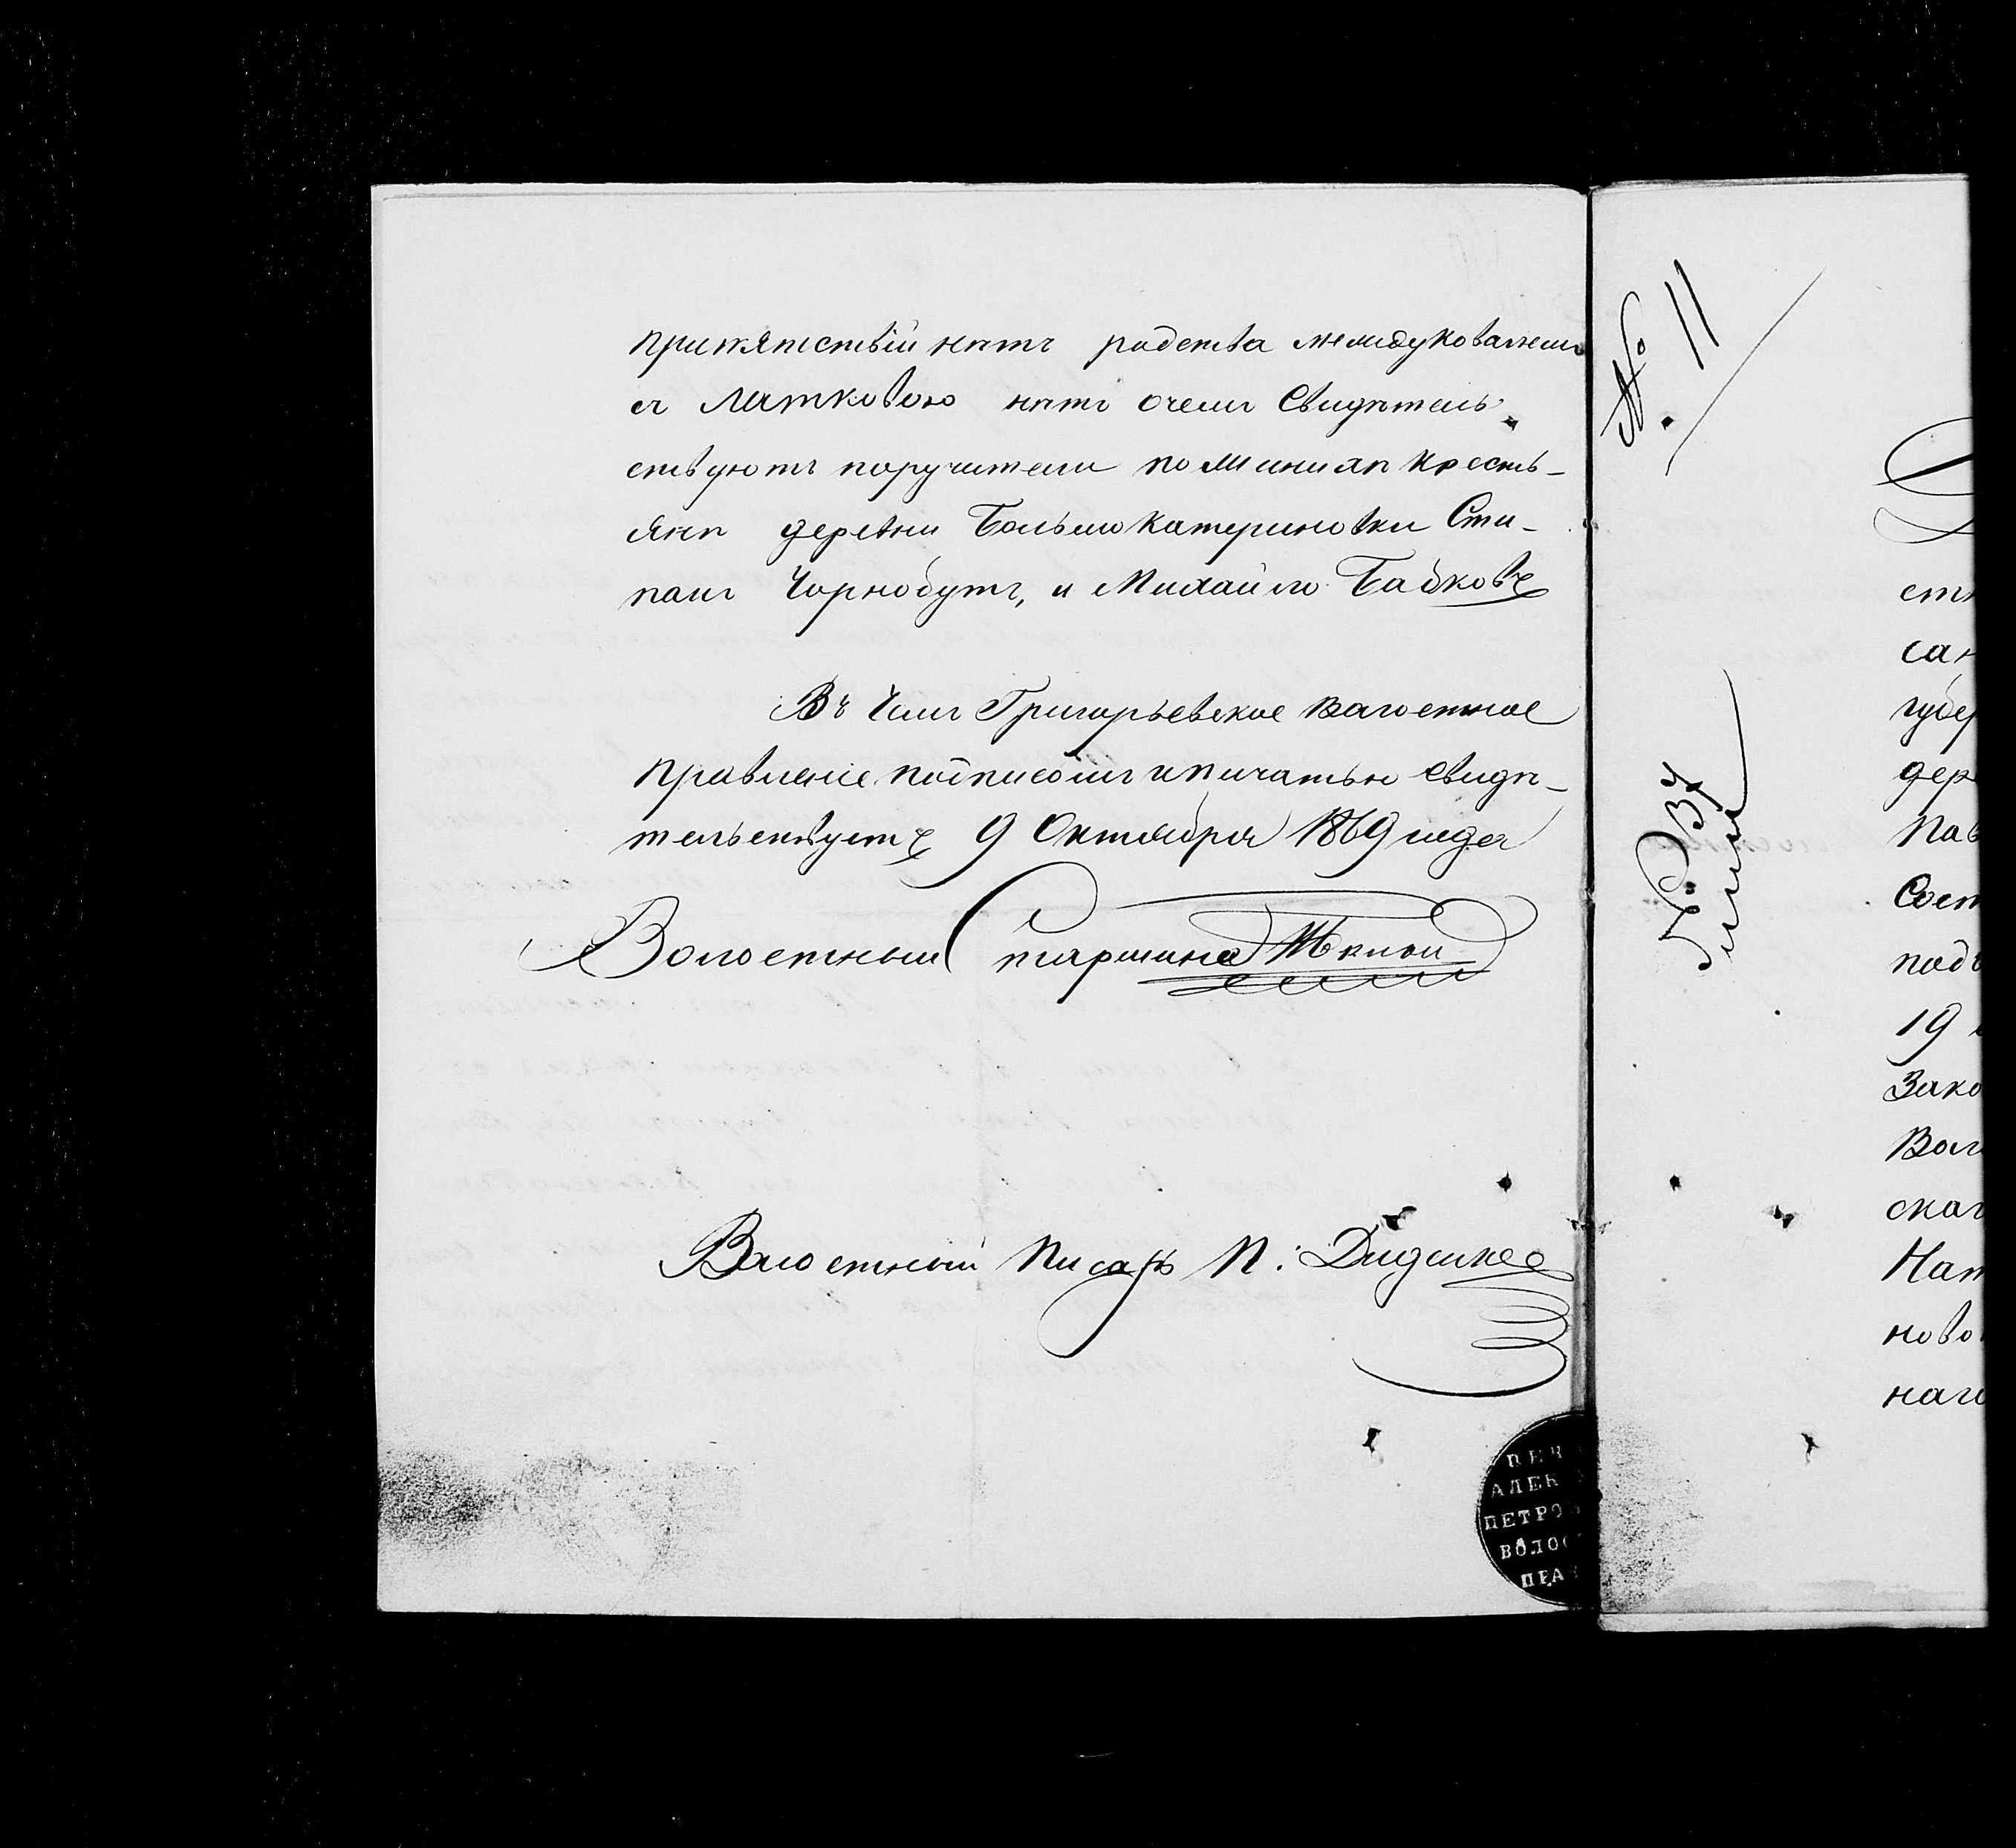 припятствій нѣтъ родства между Ковалемъ
съ Лятковою нѣтъ очемъ Свидѣтель
ствуютъ поручители поимянно кресть-
янѣ деревни Большокатериновки Сти-
панъ Чорнобутъ, и Михайло Бабковъ
Въ чемъ Григорьевское волостное
правленіе подписомъ ипичатью свидѣ-
тельствуетъ 9 Октября 1869 года
Волостный Старшина
Волостный Писарь П. Диденко
ПЕЧ
АЛЕК
ПЕТРО
ВОЛОС
ПРА
№ 11
ст
сан
губер
дер
Пав
Сост
подъ
19
Зако
Вол
скаг
Нат
ново
наго